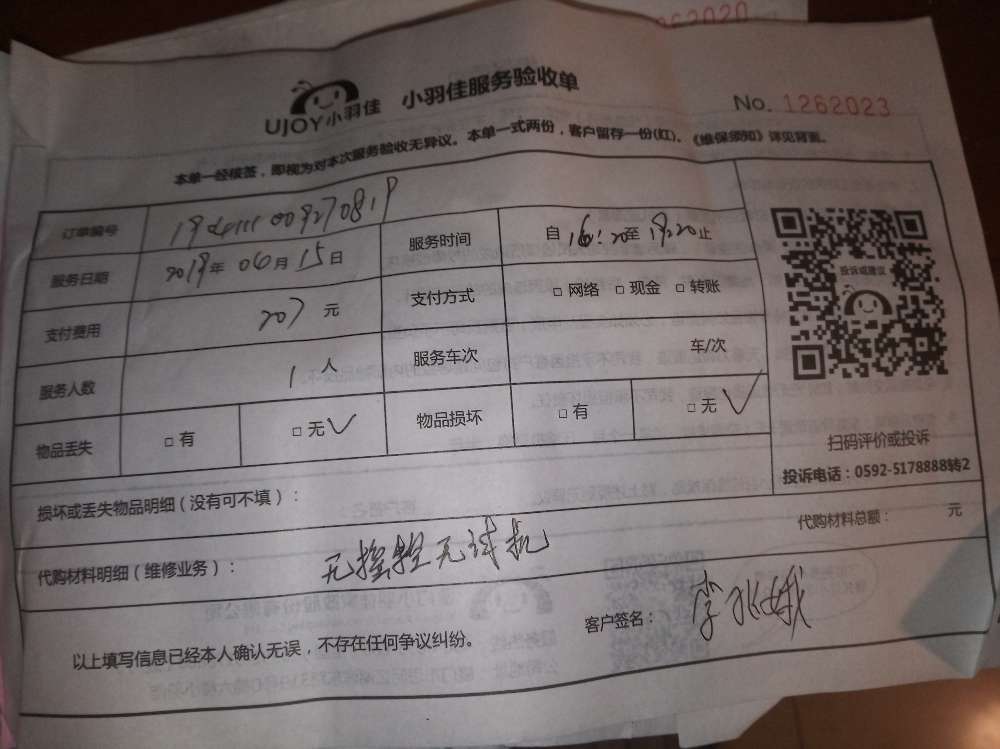 262020
UJOY小羽佳 小羽佳服务验收单
No. 1262023
本单一经核签，即视为对本次服务验收无异议。本单一式两份，客户留存一份(红)。《维保须知》详见背面。
订单编号
服务日期 2019年 06月 15日 服务时间 自 16:20至 19:20止
支付费用 207 元 支付方式 □ 网络 □ 现金 □ 转账
服务人数 1 人 服务车次 车/次
物品丢失 □ 有 □ 无√ 物品损坏 □ 有 □ 无√
投诉或建议
扫码评价或投诉
投诉电话：0592-5178888转2
损坏或丢失物品明细（没有可不填）：
代购材料总额： 元
代购材料明细（维修业务）： 无摇控无试机
以上填写信息已经本人确认无误，不存在任何争议纠纷。 客户签名：